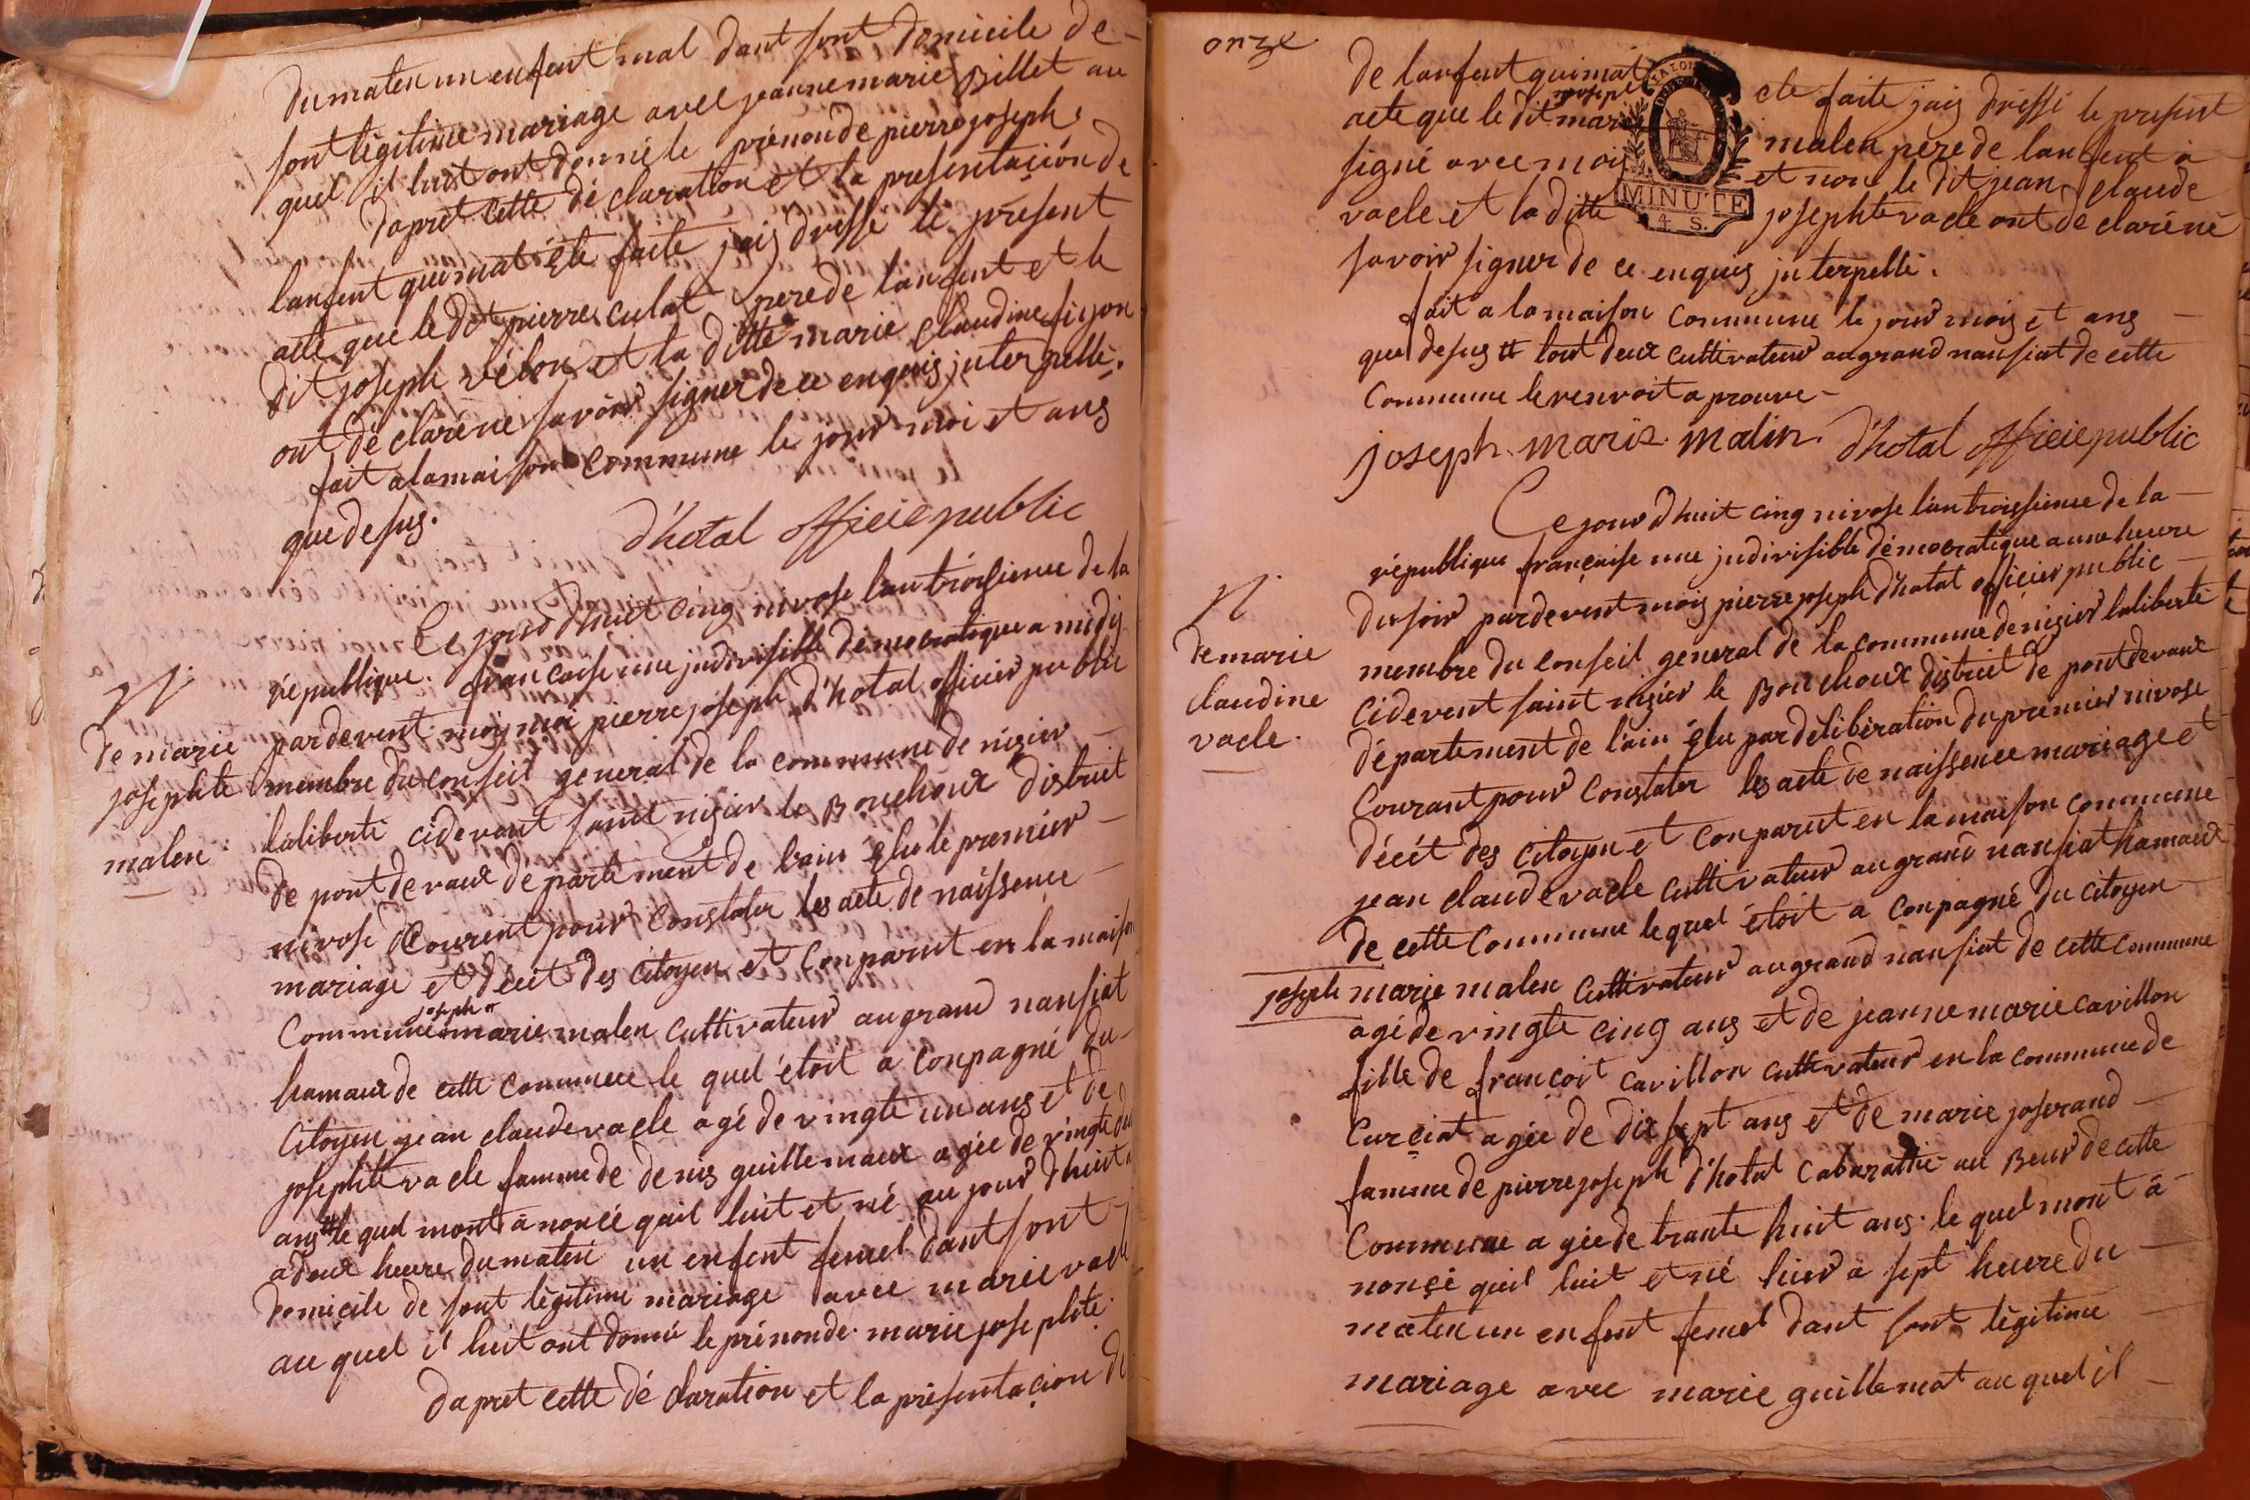 du maten un enfent mal dant sont domicile de -
sont légitime mariage avec jeanne marie Billet au
quel il luit ont donné le prénon de pierre joseph.
dapret cette dé claration et la présentaçión de
lanfent qui mat éte faite jais dressé le présent
acte que le dit pierre culat pere de lanfent et le
dit joseph vélon et la ditte marie claudine figon
ont dé claréne savoir signer de ce enquis juterpellé.
fait a la maison commune le jour moi et ans
que desus.
d'hotal officie public
Ce jour d'huit cinq nivose l'an troisieme de la
république. francaise une judivisible démocratique a midy
N
de marie
josephte
malen
par devent moy moi pierre joseph d'hotal officier public
membre du conseil general de la commune de nisier -
laliberté cidevant saint nisier le Bouchoux distruit
de pont de vaux dé parte ment de lain élu le premier -
nivose Courent pour constater les acte de naissence -
mariage et décit des citoyen et conparut en la maison
joseph
Commune marie malen cultivateur au grand nansiat
hamaux de cette commune le quel étoit a conpagné du -
citoyen jean claude vacle agé de vingte un ans et de
josephte vacle famme de denis guillemaux agée de vingte
ans le quel mont a noncé quil luit et né au jour d'huit
a deux heure du maten un enfent femel dant sont
domicile de sont légitime mariage avec marie vacle
au quel il luit ont donné le prénon de marie josephte.
dapret cette dé claration et la présentaçion de
onze
de lanfent qui mat ete faite jais dressé le present
joseph
acte que le dit marie malen pére de lanfent a
signé avec moi et non le dit jean claude
vacle et la ditte josephte vacle ont dé claréné
savoir signer de ce enquis juterpellé.
TALON
MINUTE
4 S.
fait a la maison commune le jour mois et ans -
que desus # tout deux cultivateur au grand nansiat de cette
Commune le renvoit a prouve -
joseph marie malin. d'hotal officie public
Ce jour d'huit cinq nivose l'an troissieme de la -
république française une judivisible démocratique a une heure
N
de marie
claudine
vacle.
du soir par devent mois pierre joseph d'hotal officier public -
membre du conseil general de la commune de nisier laliberté
cidevent saint nisier le Bouchoux distruit de pont devaux
département de l'ain élu par délibération du premier nivose
Courant pour Constater les acte de naissence mariage et
décét des citoyen et conparut en la maison commune
jean claude vacle cultivateur au grand nansiat hamaux
de cette commune le quel étoit a conpagné du citoyen
joseph marie malen cultivateur au grand nansiat de cette commune
agé de vingte cinq ans et de jeanne marie cavillon
fille de françoit cavillon cultivateur en la commune de
Curciat agée de dix sept ans et de marie joserand -
famme de pierre joseph d'hotal Cabarattié au Beur de cette
Commune a gée de trante huit ans. le quel mont a -
nonçé quil luit et né hier a sept heure du -
maten un enfent femel dant sont légitime -
mariage avec marie guillemot au quel il -